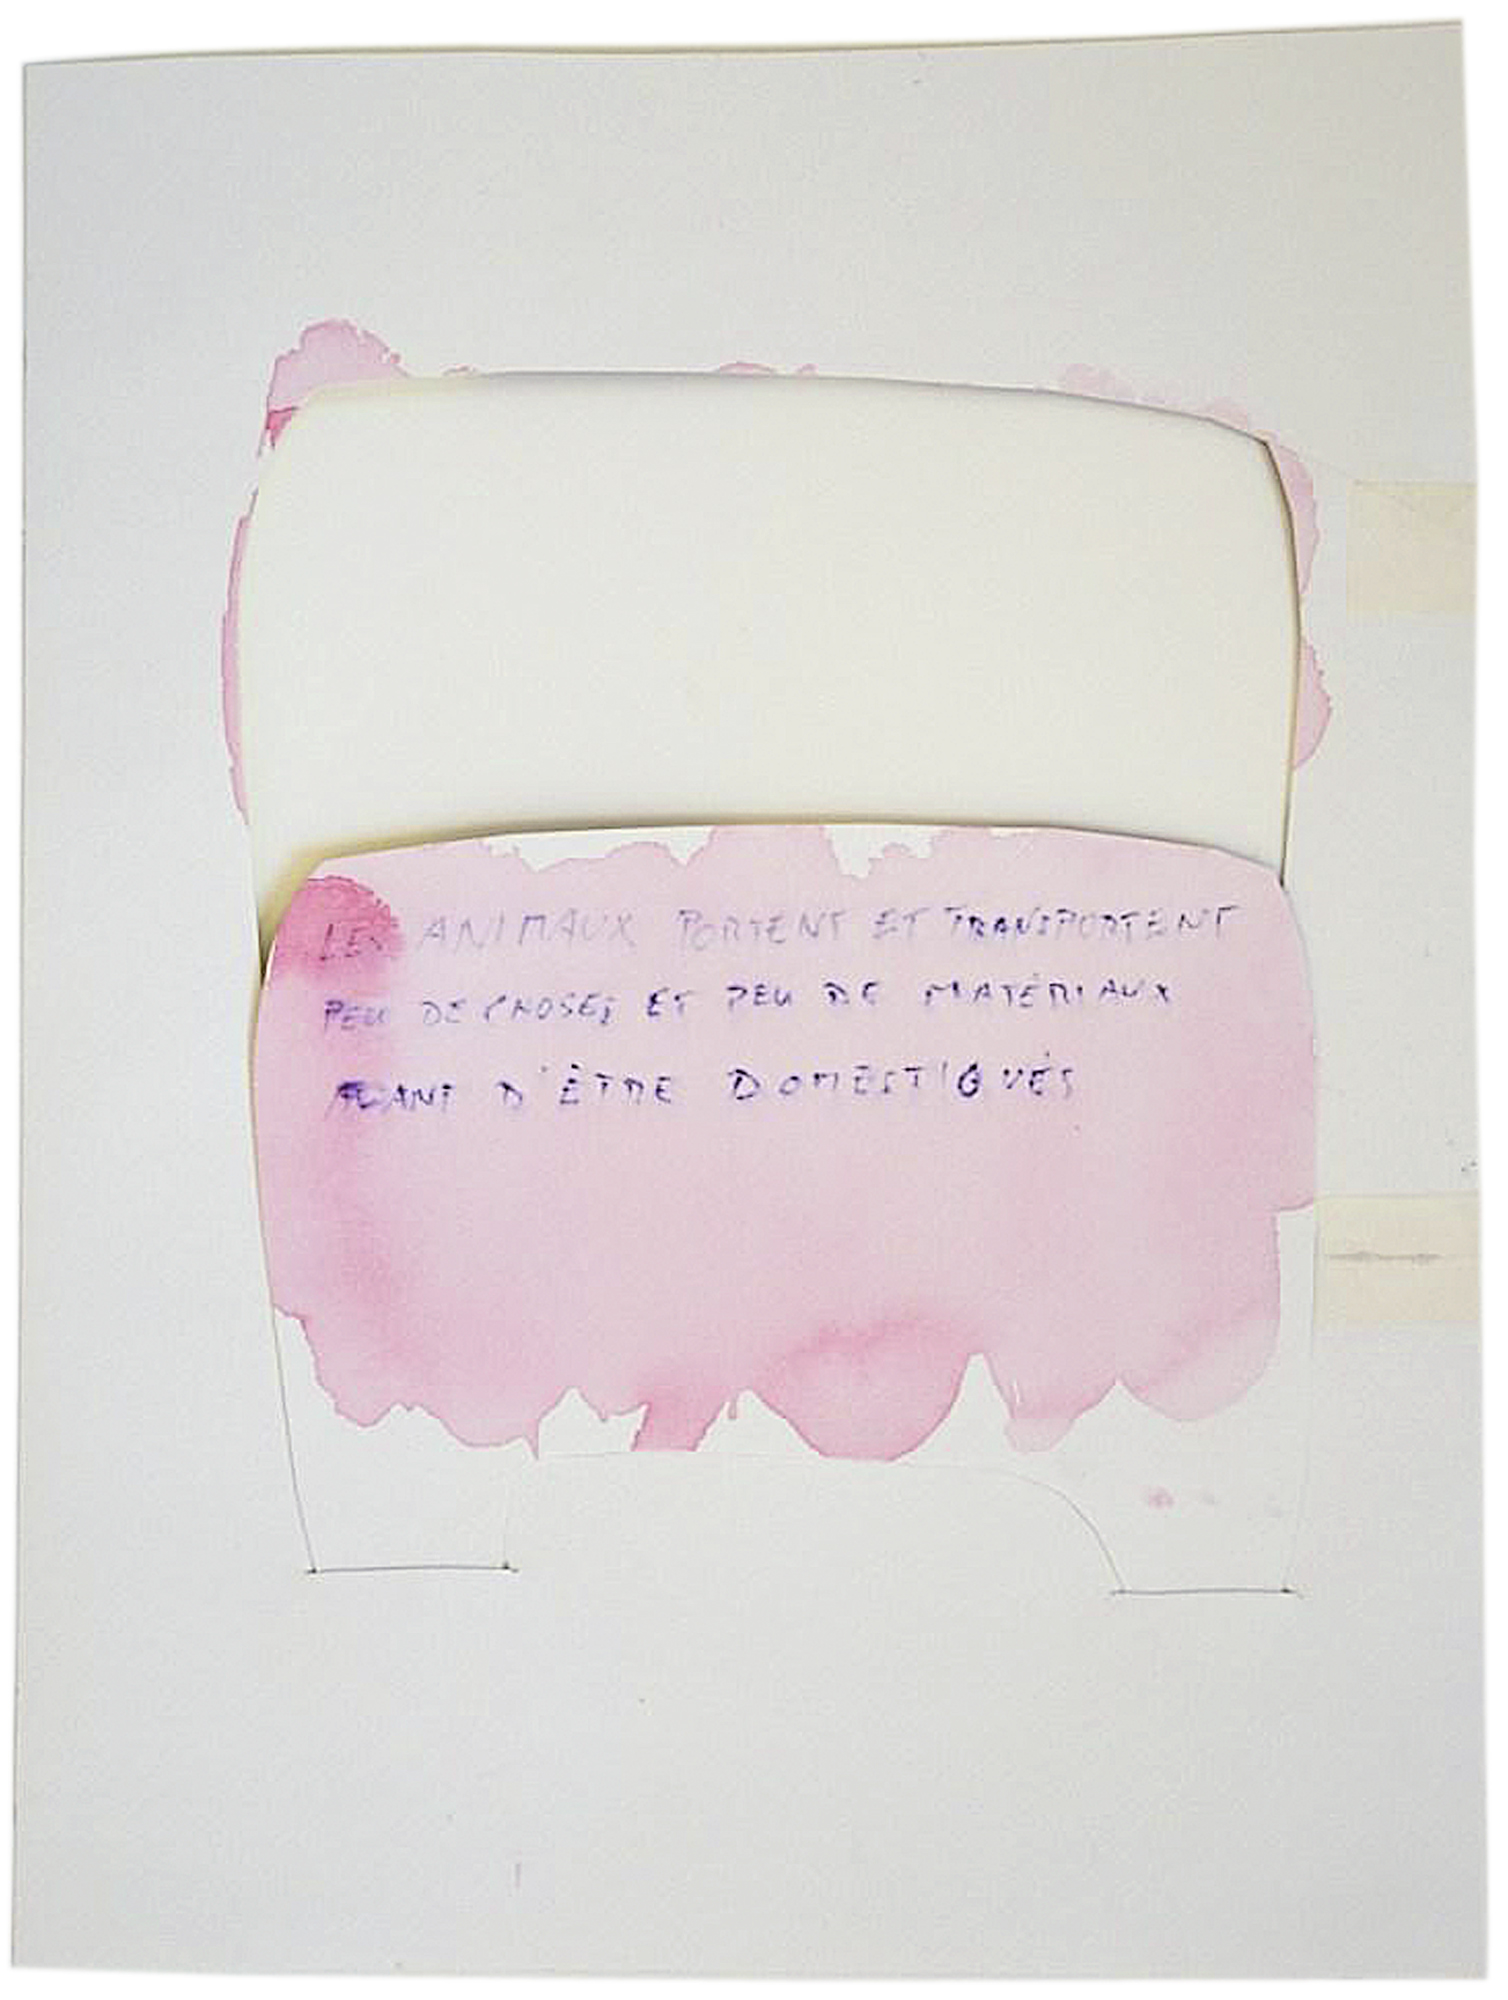 LES ANIMAUX PORTENT ET TRANSPORTENT
PEU DE CHOSES ET PEU DE MATÉRIAUX
AVANT D'ÊTRE DOMESTIQUÉS